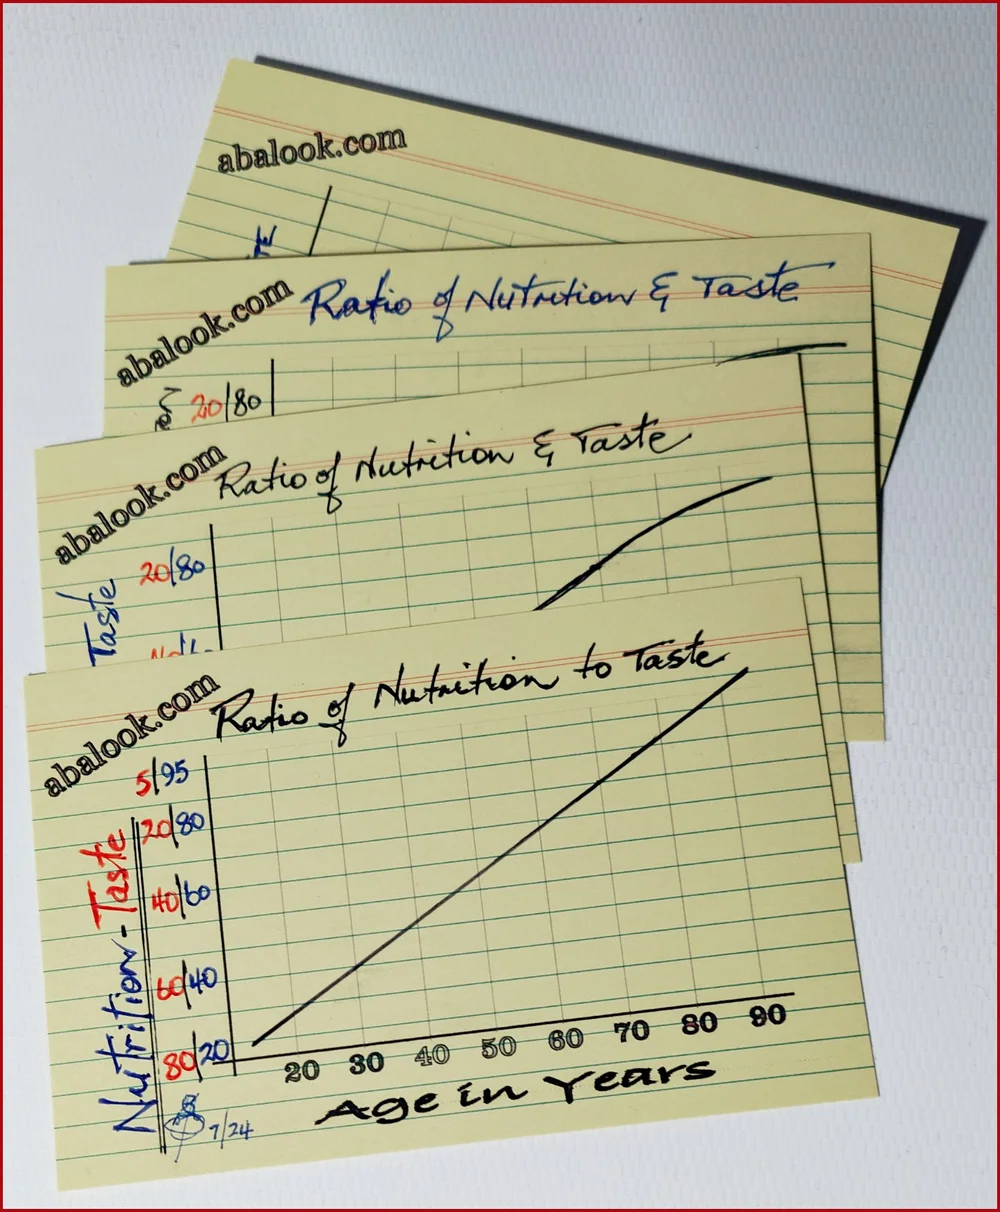 abalook.com
abalook.com
Ratio of Nutrition & Taste
20/80
abalook.com
Ratio of Nutrition & Taste
20/80
Taste
abalook.com
Ratio of Nutrition to Taste
5/95
20/80
40/60
60/40
80/20
Nutrition - Taste
20 30 40 50 60 70 80 90
Age in Years
7/24